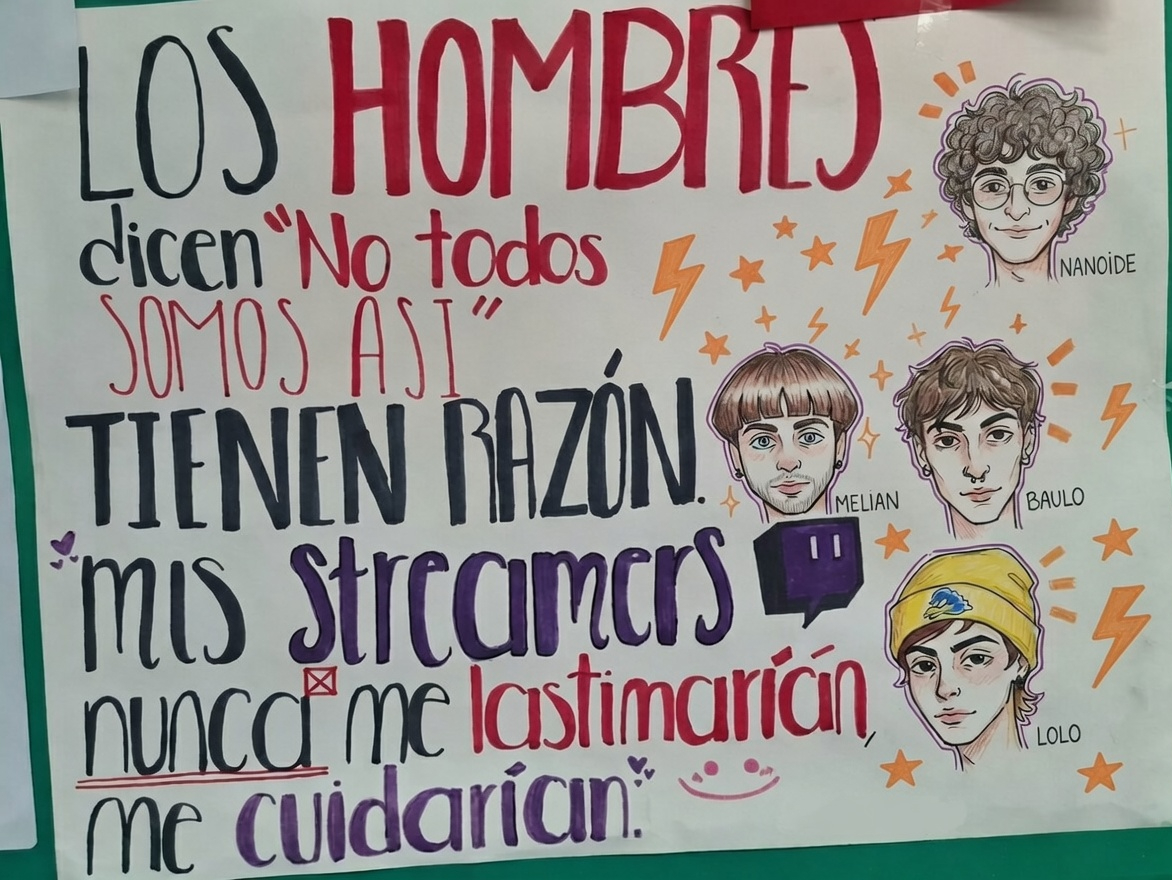 LOS HOMBRES
dicen "No todos
SOMOS ASI"
TIENEN RAZÓN.
"mis streamers
nunca me lastimaríán,
me cuidarían."
NANOIDE
MELIAN
BAULO
LOLO